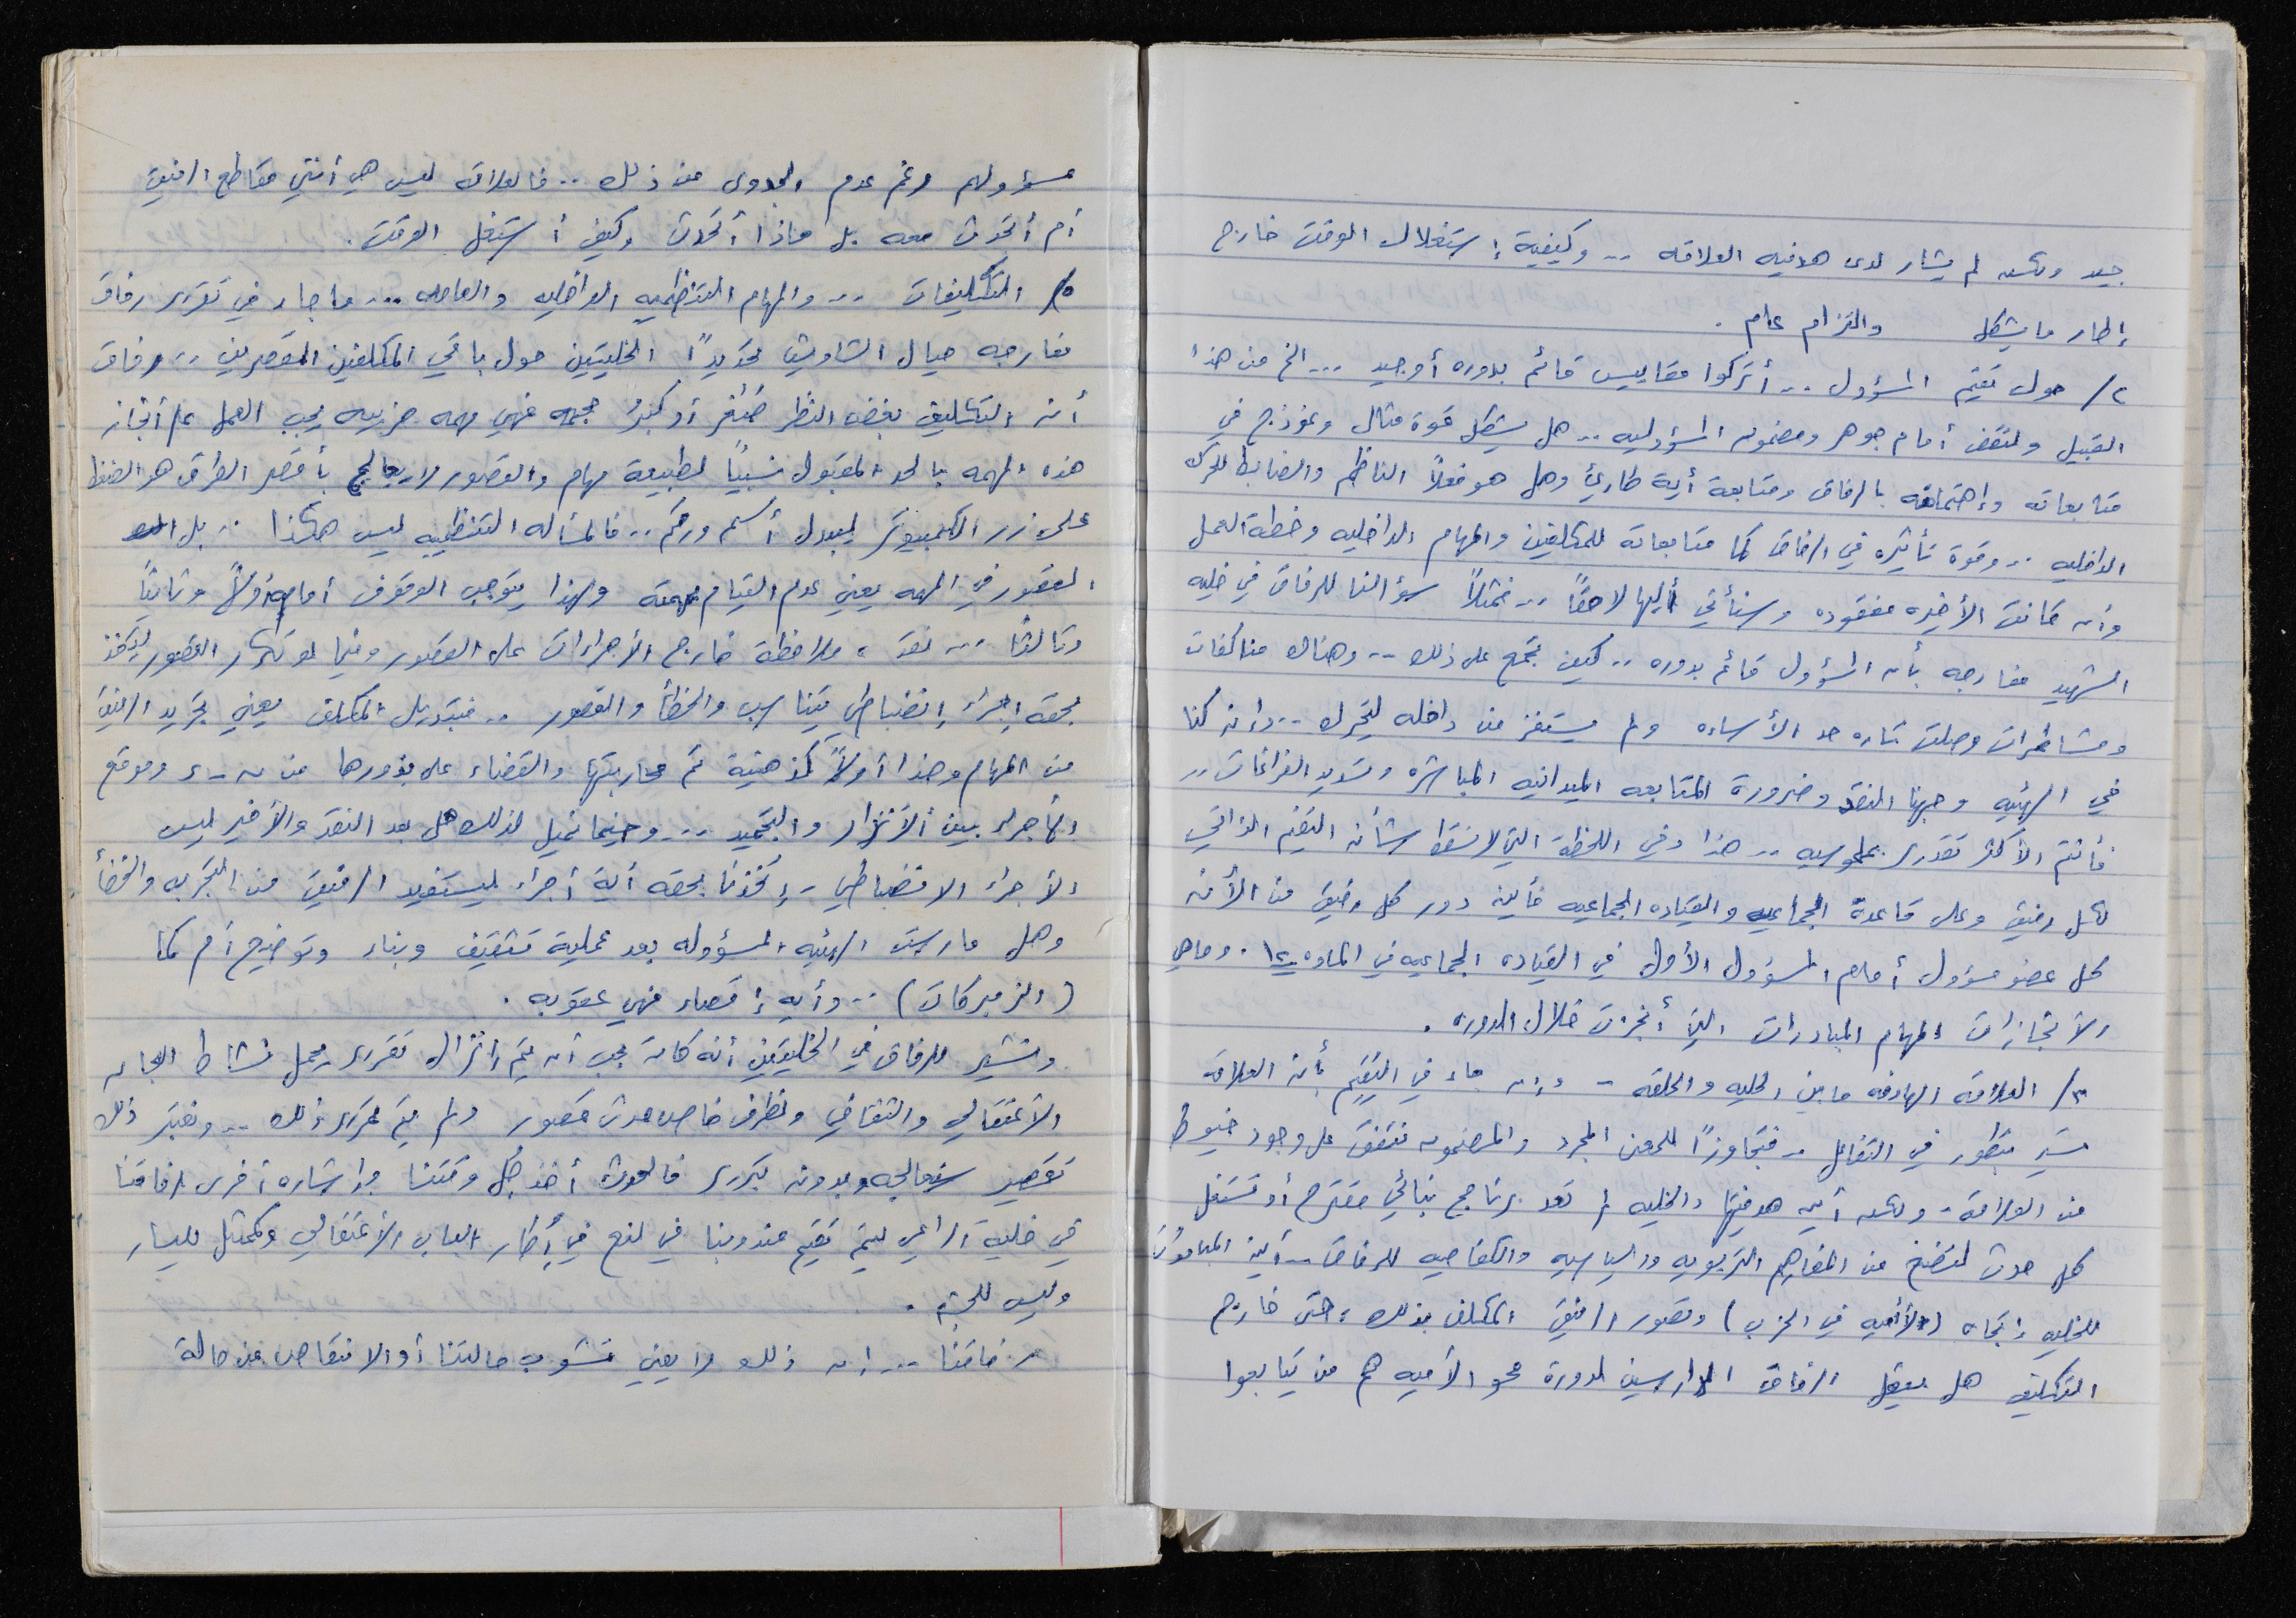 جيد ولكن لم يشار لمدى هدفية العلاقه .. وكيفية إستغلال الوقت خارج
إطار ما يشكل والتزام عام .
٢/ حول تقيم المسؤول .. أتركوا مقاييس قائم بدوره أو جيد ... الخ من هذا
القبيل ولنقف أمام جوهر ومضمون المسؤوليه .. هل يشكل قوة مثال ونموذج في
متابعاته وإهتمامه بالرفاق ومتابعة أية طارئ وهل هو فعلاً الناظم والضابط للحركه
الداخليه .. وقوة تأثيره في الرفاق كما متابعاته للمكلفين والمهام الداخليه وخطة العمل
وإن كانت الأخيره مفقوده وسنأتي إليها لاحقاً .. فمثلاً سؤالنا للرفاق في خليه
الشهيد مفارجه بأن المسؤول قائم بدوره .. كيف نجمع على ذلك .. وهناك مناكفات
ومشاحرات وصلت تاره حد الأساءه ولم يستفز من داخله ليتحرك .. وإن كنا
في الهيئه وجهنا النقد وضرورة المتابعه الميدانيه المباشره وتسديد الفراغات ..
فأنتم الأكثر تقدير بملموسيه .. هذا وفي اللحظة التي لا نسقط شأن التقيم الذاتي
لكل رفيق وعلى قاعدة الجماعيه والقياده الجماعيه فأين دور كل رفيق من الأن
كل عضو مسؤول أمام المسؤول الأول في القياده الجماعيه في الماده ١٢ . وما هي
الأنجازات المهام المبادرات التي أنجزت خلال الدوره .
٣/ العلاقه الهادفه ما بين الخليه والحلقه - وإن جاء في التقيم بأن العلاقه
تسير بتطور في التفاعل .. فتجاوزاً للمعنى المجرد والمضمون نتفق على وجود خيوط
من العلاقه .. ولكن أين هدفيتها والخليه لم تعد برنامج بنائي مقترح أو تستغل
كل حدث لتضخ من المفاهيم التربويه والسياسيه والكفاحيه للرفاق .. أين المبادرات
للخليه إتجاه (الأميه في الحزب) وتصور الرفيق المكلف بذلك ، حتى خارج
التكليف هل يعقل الرفاق الدارسين لدورة محو الأميه هم من يتابعوا
مسؤولهم رغم عدم الجدوى من ذلك .. فالعلاقه ليس هي أنني مقاطع الرفيق
أم أتحدث معه بل ماذا أتحدث وكيف أستغل الوقت .
٥/ التكليفات .. والمهام التنظميه الداخليه والعامه ... ما جاء في تقرير رفاق
مفارجه حيال الشاويش تحديداً الخليتين حول باقي المكلفين المقصرين .. رفاق
أن التكليف بغض النظر صَغُر أو كَبُر حجمه فهي مهمه حزبيه يجب العمل على أنجاز
هذه المهمه بالحد المقبول نسبياً لطبيعة مهام والقصور لا يعالج بأقصر الطرق هو الضغط
على زر الكمبيوتر ليبدل أسم ورقم .. فالمسأله التنظيميه ليس هكذا .. بل
القصور في المهمه يعني عدم القيام بمهمته ولهذا يتوجب الوقوف أمامه أولاً وثانياً
وثالثاً ... نقد ، ملاحظة خارج الأجراءات على القصور وفيما لو تكرر القصور ليتخذ
بحقه إجراء إنضباطي يتناسب والخطأ والقصور .. فتبديل المكلف يعني تجريد الرفيق
من المهام وهذا أولاً كذهنية تم محاربتها والقضاء على بذورها من وموقع
الأجراء بين الأنذار والتجميد ... وحينما نميل لذلك هل بعد النقد والأخير ليس
الأجراء الانضباطي - إتخذنا بحقه أية أجراء ليستفيد الرفيق من التجربه والخطأ
وهل مارست الهيئه المسؤوله بعد عملية تثقيف وبناء وتوضيح أم كما
(الزمبركات) .. وأيه إقصاء فهي عقوبه .
ونشير للرفاق في الخليتين أنه كان يجب أن يتم إنزال تقرير يجمل نشاط اللجان
الأعتقالي والثقافي ولظرف خاص حدث قصور ولم يتم تمرير ذلك .. ونعتبر ذلك
تقصير سنعالجه وبدون تبرير فالحدث أخذ جُل وقتنا وإشاره أخرى لرفاقنا
في خلية الراعي ليتم تقيم مندوبنا في لنع في إطار العاب الأعتقالي وكممثل لليسار
وليس للجبهه .
رفاقنا ... إن ذلك لا يعني نشوب حالتنا أو الانتقاص من حالة